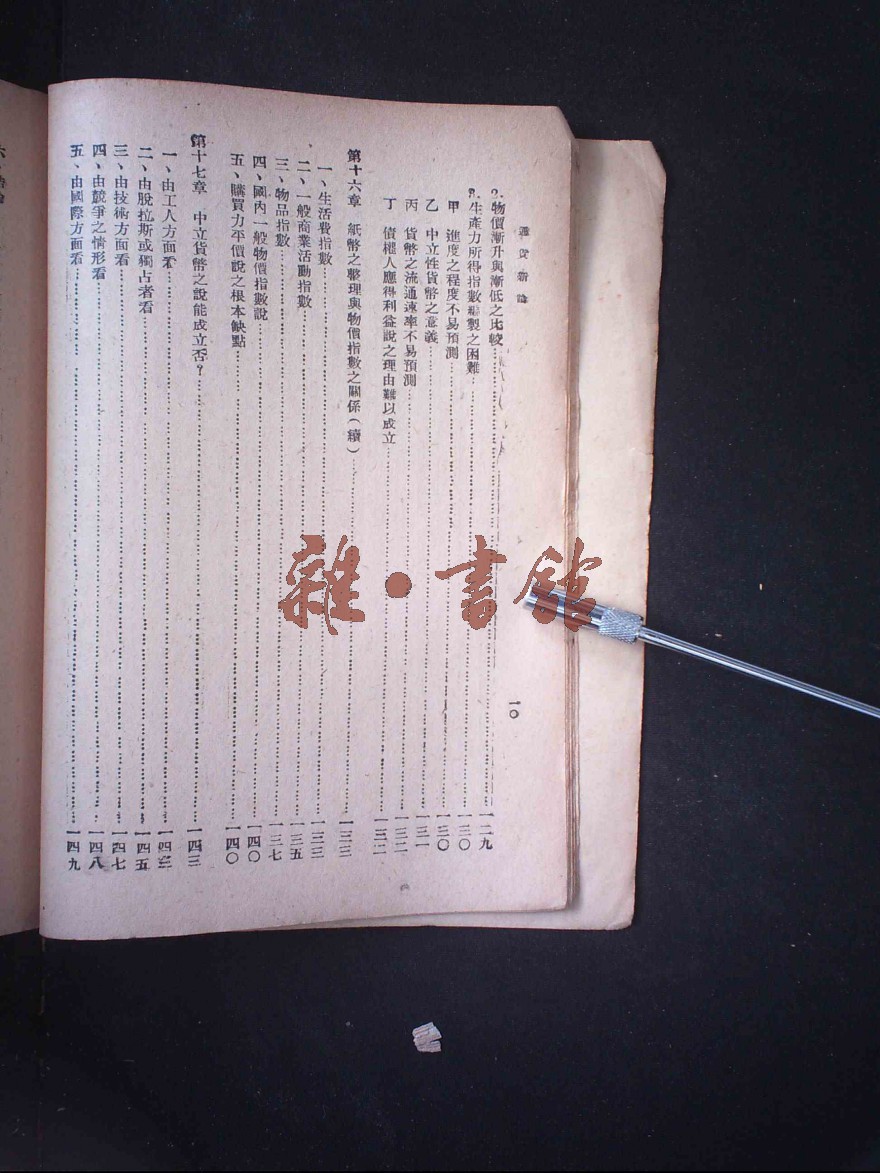 通貨新論
一〇
2. 物價漸升與漸低之比較……一二九
生產力所得指數編製之困難……一三〇
甲 進度之程度不易預測……一三〇
乙 中立性貨幣之意義……一三一
丙 貨幣之流通速率不易預測……一三二
丁 債權人應得利益說之理由難以成立……一三二
第十六章 紙幣之整理與物價指數之關係（續）……一三三
一、生活費指數……一三三
二、一般商業活動指數……一三五
三、物品指數……一三七
四、國內一般物價指數說……一四〇
五、購買力平價說之根本缺點……一四〇
第十七章 中立貨幣之說能成立否？……一四三
一、由工人方面看……一四三
二、由脫拉斯或獨占者看……一四五
三、由技術方面看……一四七
四、由競爭之情形看……一四八
五、由國際方面看……一四九
雜·書館